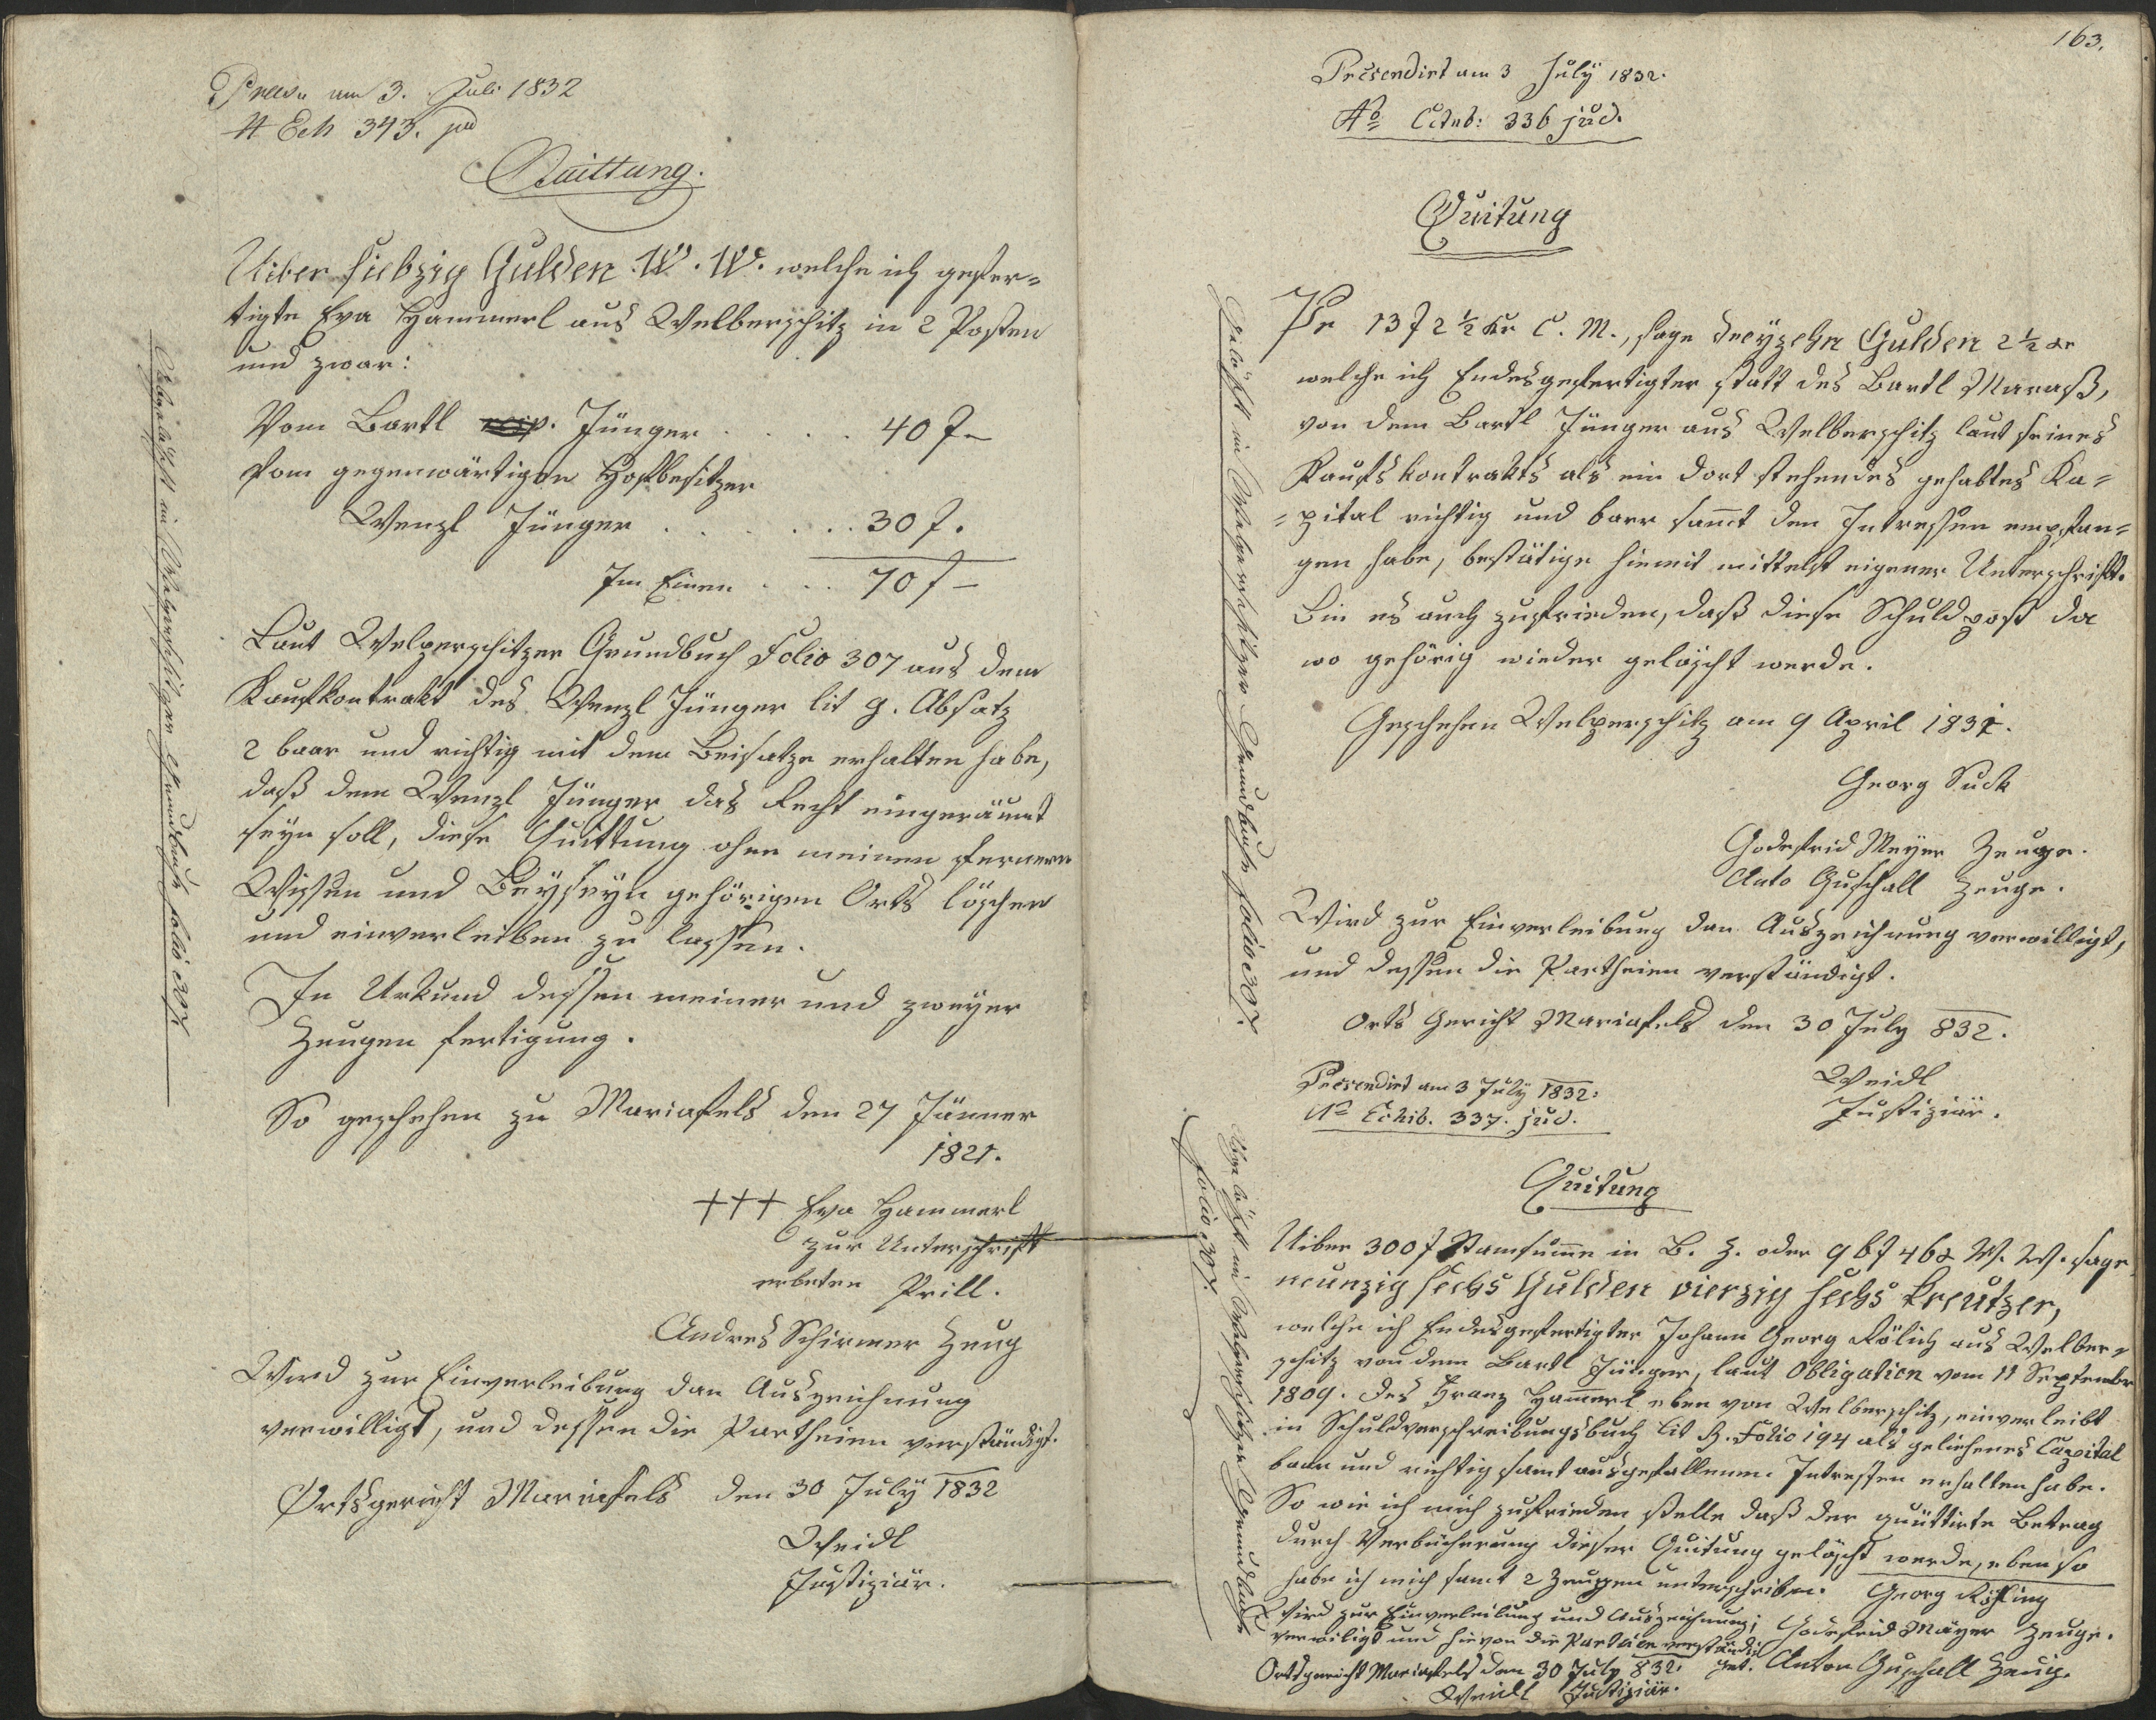 Praes. am 3. Juli 1832
N Exh 343. jud
Quittung.
Uiber siebzig Gulden W. W. welche ich gefer=
tigte Eva Hammerl aus Welberschitz in 2 Posten
und zwar:
Vom Bartl Jünger . . . . 40 f –
Vom gegenwärtigen Hofbesitzer
Wenzl Jünger . . . . . 30 f.
Im Einen . . . 70 f –
Laut Welperschitzer Grundbuch Folio 307 aus dem
Kaufkontrakt des Wenzl Jünger lit g. Absatz
2 baar und richtig mit dem Beisatze erhalten habe,
daß dem Wenzl Jünger das Recht eingeräumt
seyn soll, diese Quittung ohne meinen fernern
Wissen und Beyseyn gehörigen Orts löschen
und einverleiben zu lassen.
In Urkund dessen meiner und zweyer
Zeugen fertigung.
So geschehen zu Mariafels den 27 Jänner
1821.
+++ Eva Hammerl
zur Unterschrift
erbeten Prill.
Andres Schirmer Zeug
Wird zur Einverleibung dan Auszeichnung
verwilligt, und dessen die Partheien verständigt.
Ortsgericht Mariafels den 30 July 1832
Weidl
Justiziär.
Abgelöscht im Welperschitzer Grundbuch folio 307.
163.
Präsendirt am 3 July 1832.
No Exhib: 336 jud.
Quitung
Pr 13 f 2 ½ Kr C. M., sage dreyzehn Gulden 2 ½ Kr
welche ich Endesgefertigter statt des Bartl Maraß,
von dem Bartl Jünger aus Welberschitz laut seines
Kaufskontrakts als ein dort stehendes gehabtes Ka=
=pital richtig und baar samt den Intressen empfan=
gen habe, bestätige hiemit mittelst eigener Unterschrift.
Bin es auch zufrieden, daß diese Schuldpost da
wo gehörig wieder gelöscht werde.
Geschehen Welperschitz am 9 April 1831.
Georg Suck
Godefrid Meyer Zeuge.
Anto Guschall Zeuge.
Wird zur Einverleibung dan Auszeichnung verwilligt,
und dessen die Partheien verständigt.
Orts Gericht Mariafels den 30 July 832.
Weidl
Justiziär.
Gelöscht in Welperschitzer Grundbuch folio 307.
Präsendirt am 3 July 1832.
No Exhib. 337. jud.
Quitung
Uiber 300 f Stamsume in B. Z. oder 96 f 46 x W. W. sage
neunzig sechs Gulden vierzig sechs Kreutzer,
welche ich Endesgefertigter Johann Georg Rölich aus Welber=
schitz von dem Bartl Jünger, laut Obligation vom 11 Septembr
1809. des Franz Hamerl eben von Welberschitz, einverleibt
in Schuldverschreibungsbuch lit B. Folio 194 als geliehenes Capital
baar und richtig samt ausgefallenen Intressen erhalten habe.
So wie ich mich zufrieden stelle daß der quittirte Betrag
durch Verbücherung dieser Quitung gelöscht werde, eben so
habe ich mich samt 2 Zeugen unterschrieben. Georg
Wird zur Einverleibung und Auszeichnung Godefrid Mayer Zeuge.
verwiligt und hievon die Partheien verständi
get. Anton Guschall Zeug.
Ortsgericht Mariafels den 30 July 832.
Weidl Justiziär.
Abgelöscht im Welperschitzer Grundbuch
folio 307.